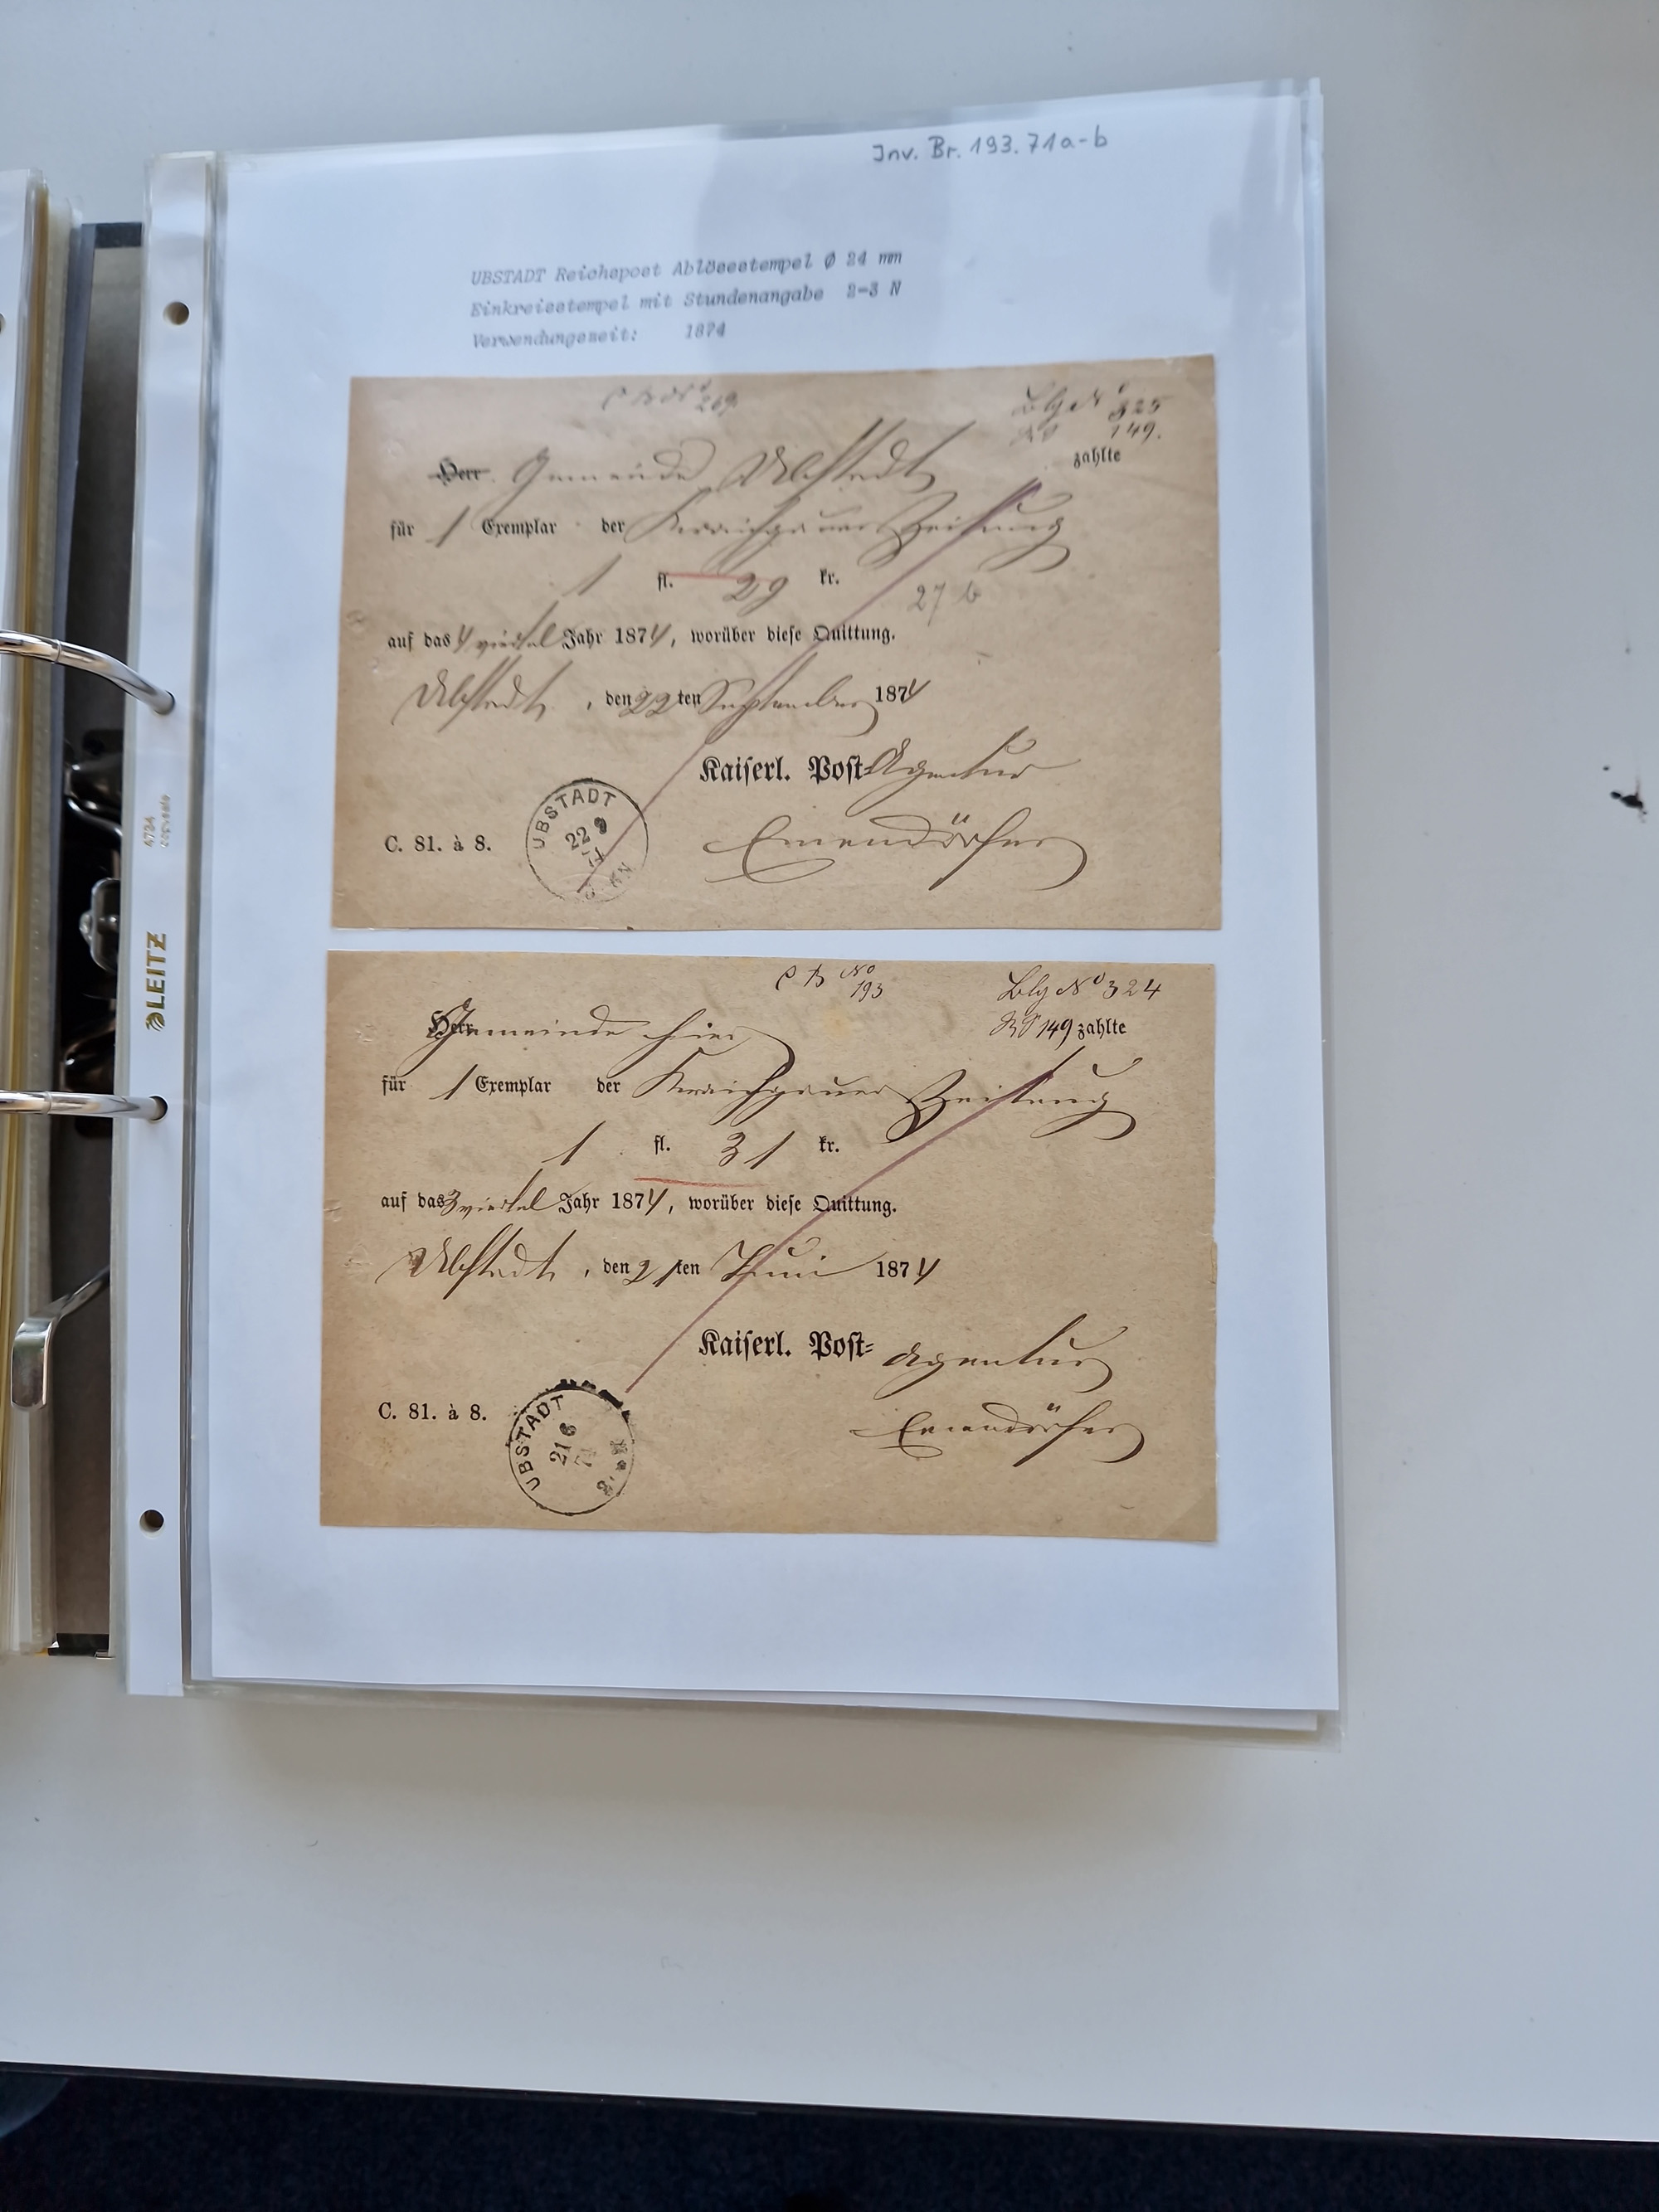 Inv. Br. 193.71a-b
UBSTADT Reichspost Ablösestempel Ø 24 mm
Einkreisstempel mit Stundenangabe 2-3 N
Verwendungszeit: 1874
C B No 269.
Blg No 325
149.
Herr Gemeinde Ubstadt zahlte
für 1 Exemplar der Kraichgauer Zeitung
1 fl. 29 kr.
27 b
auf das 4 viertel Jahr 1874, worüber diese Quittung.
Ubstadt, den 22ten September 1874
Kaiserl. Post-Agentur
C. 81. à 8.
UBSTADT
22 9
74
N
Emendörfer
C B No 193
Blg No 324
Herr Gemeinde hier 149 zahlte
für 1 Exemplar der Kraichgauer Zeitung
1 fl. 31 kr.
auf das 3 viertel Jahr 1874, worüber diese Quittung.
Ubstadt, den 21ten Juni 1874
Kaiserl. Post-Agentur
C. 81. à 8.
UBSTADT
21 6
74
Emendörfer
LEITZ
4734